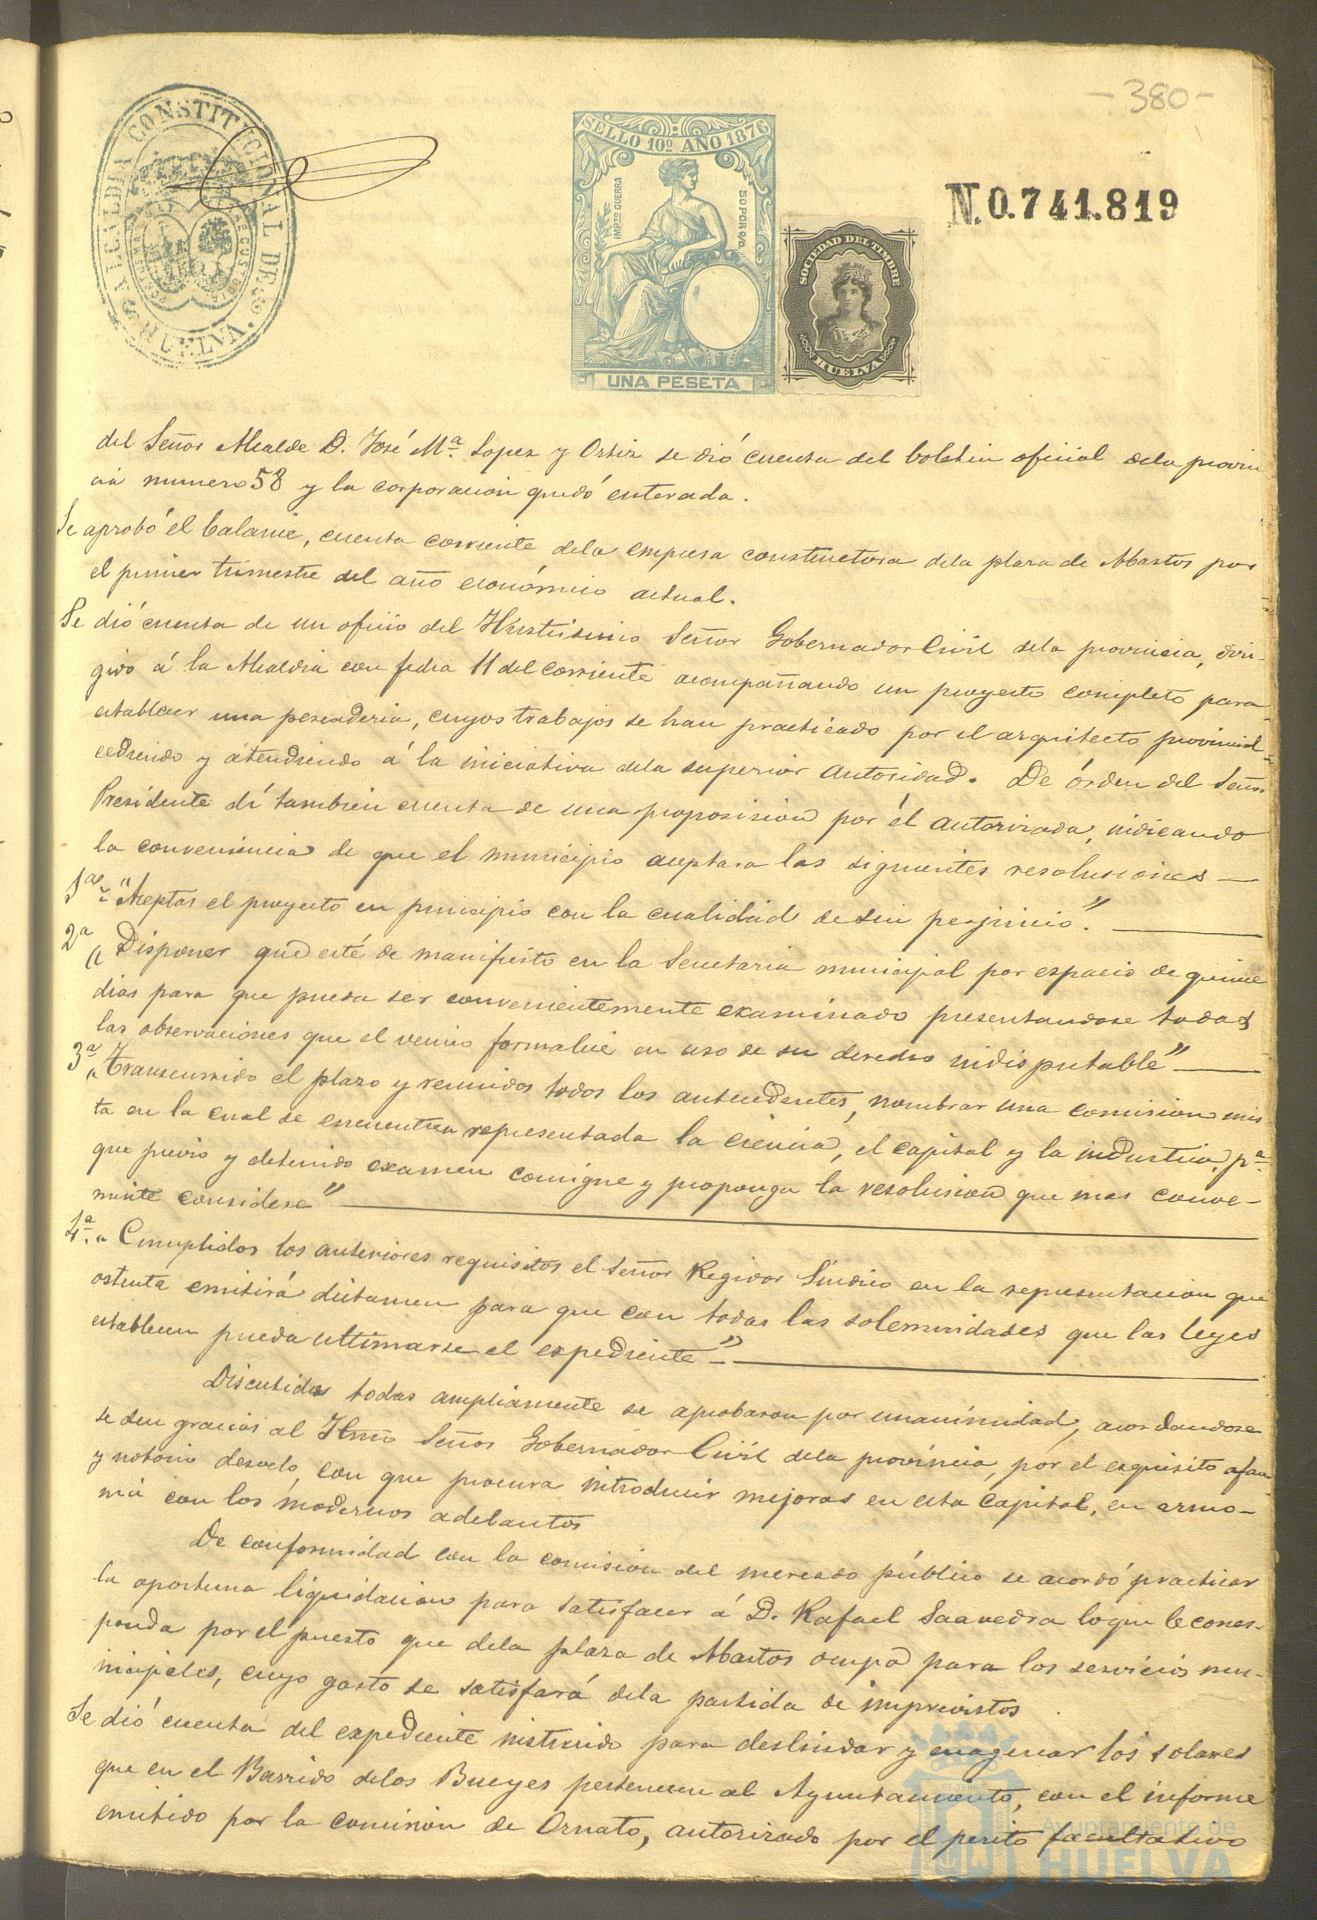 -380-
ALCALDIA CONSTITUCIONAL DE HUELVA
SELLO 10º AÑO 1876
IMPTO GUERRA
50 POR 0/0
UNA PESETA
SOCIEDAD DEL TIMBRE
HUELVA
N.0.741.819
del Señor Alcalde D. José Mª. Lopez y Ortiz se dió cuenta del boletin oficial dela provin
cia numero 58 y la corporacion quedó enterada.
Se aprobó el balance, cuenta corriente dela empresa constructora dela plaza de Abastos por
el primer trimestre del año económico actual.
Se dió cuenta de un oficio del Ilustrisimo Señor Gobernador Civil dela provincia, diri-
gido á la Alcaldia con fecha 11 del corriente acompañando un proyecto completo para
establecer una pescaderia, cuyos trabajos se han practicado por el arquitecto provincial
cediendo y atendiendo á la iniciativa dela superior autoridad. De órden del Señor
Presidente dí tambien cuenta de una proposision por él autorizada, indicando
la conveniencia de que el municipio aceptara las siguientes resolusiones —
1ª "Aceptar el proyecto en principio con la cualidad de sin perjuicio."
2ª " Disponer que esté de manifiesto en la Secretaria municipal por espacio de quince
dias para que pueda ser convenientemente examinado presentandose todas
las observaciones que el vecino formalice en uso de su derecho indisputable"
3ª "Trascurrido el plazo y reunidos todos los antecedentes, nombrar una comision mis-
ta en la cual se encuentra representada la ciencia, el capital y la industria, pª
que previo y detenido examen consigne y proponga la resolusion que mas conve-
niente considere"
4ª. " Cumplidos los anteriores requisitos el Señor Regidor Síndico en la representacion que
ostenta emitirá dictamen para que con todas las solemnidades que las leyes
establecen pueda ultimarse el expediente"
Discutidas todas ampliamente se aprobaron por unanimidad, acordandose
se den gracias al Ilmo Señor Gobernador Civil dela provincia, por el exquisito afan
y notorio desvelo, con que procura introducir mejoras en esta Capital, en armo-
nia con los modernos adelantos
De conformidad con la comision del mercado público se acordó practicar
la oportuna liquidacion para satisfacer á D. Rafael Saavedra lo que le corres-
ponda por el puesto que dela plaza de Abastos ocupa para los servicios mu-
nicipales, cuyo gasto se satisfará dela partida de imprevistos
Se dió cuenta del expediente instruido para deslindar y enagenar los solares
que en el Barrido delos Bueyes pertenecen al Ayuntamiento, con el informe
emitido por la comision de Ornato, autorizado por el perito facultativo
Ayuntamiento de
HUELVA